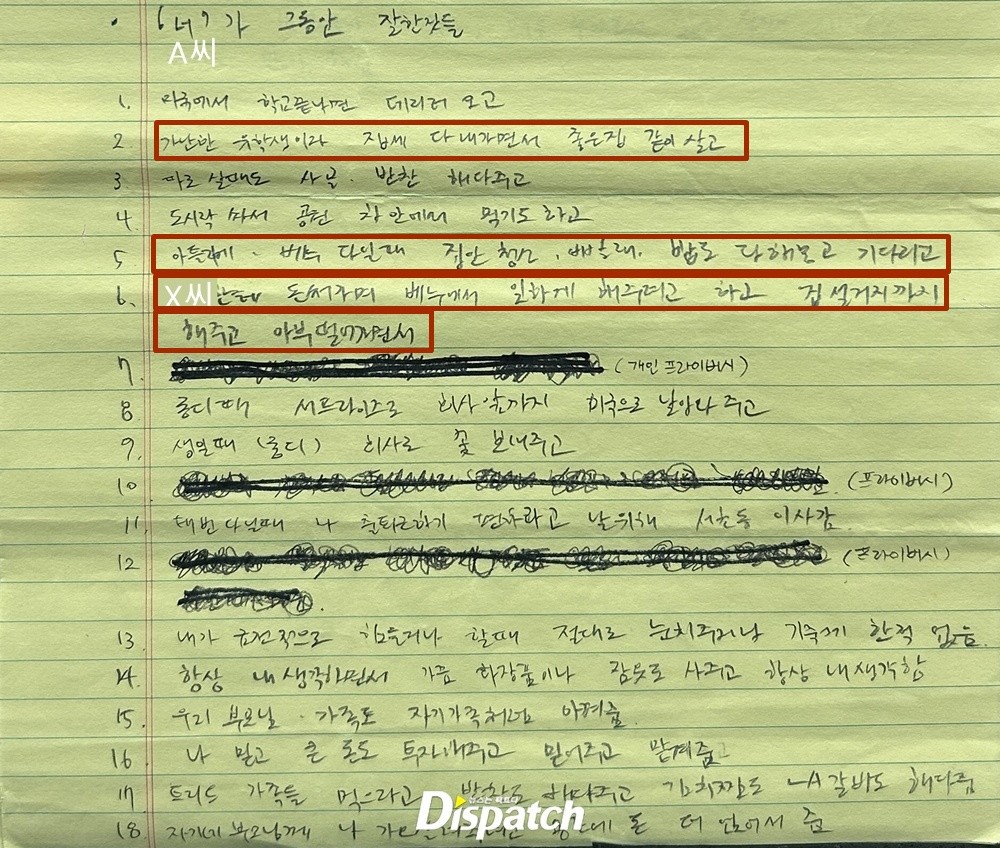 • '너'가 그동안 잘한것들
A씨
1. 미국에서 학교끝나면 데리러 오고
2 가난한 유학생이라 집세 다 내가면서 좋은집 같이 살고
3. 따로 살때도 사골. 반찬 해다주고
4 도시락 싸서 공원 차안에서 먹기도 하고
5 베슬 다닐때 집안 청소, 빨래. 밥도 다해놓고 기다리고
6. X씨한테 돈써가며 베슬에서 일하게 해주려고 하고 집 설거지까지
해주고 아부떨어가면서
7. (개인 프라이버시)
8 롱디때 서프라이즈로 회사앞까지 미국으로 날아와 주고
9. 생일때 (롱디) 회사로 꽃 보내주고
10 (프라이버시)
11. 테번다닐때 나 출퇴근하기 편하라고 날위해 서초동 이사감.
12 (프라이버시)
13. 내가 금전적으로 힘들거나 할때 절대로 눈치주거나 기죽게 한적 없음.
14. 항상 내생각하면서 가끔 화장품이나 잠옷도 사주고 항상 내생각함
15. 우리 부모님. 가족도 자기가족처럼 아껴줌.
16 나 믿고 큰 돈도 투자해주고 믿어주고 맡겨줌
17 가족들 먹으라고 반찬도 해다주고 김치찜도 LA갈비도 해다줌
18. 자기네 부모님께 나 돈 더 얹어서 줌
뉴스는 팩트다
Dispatch